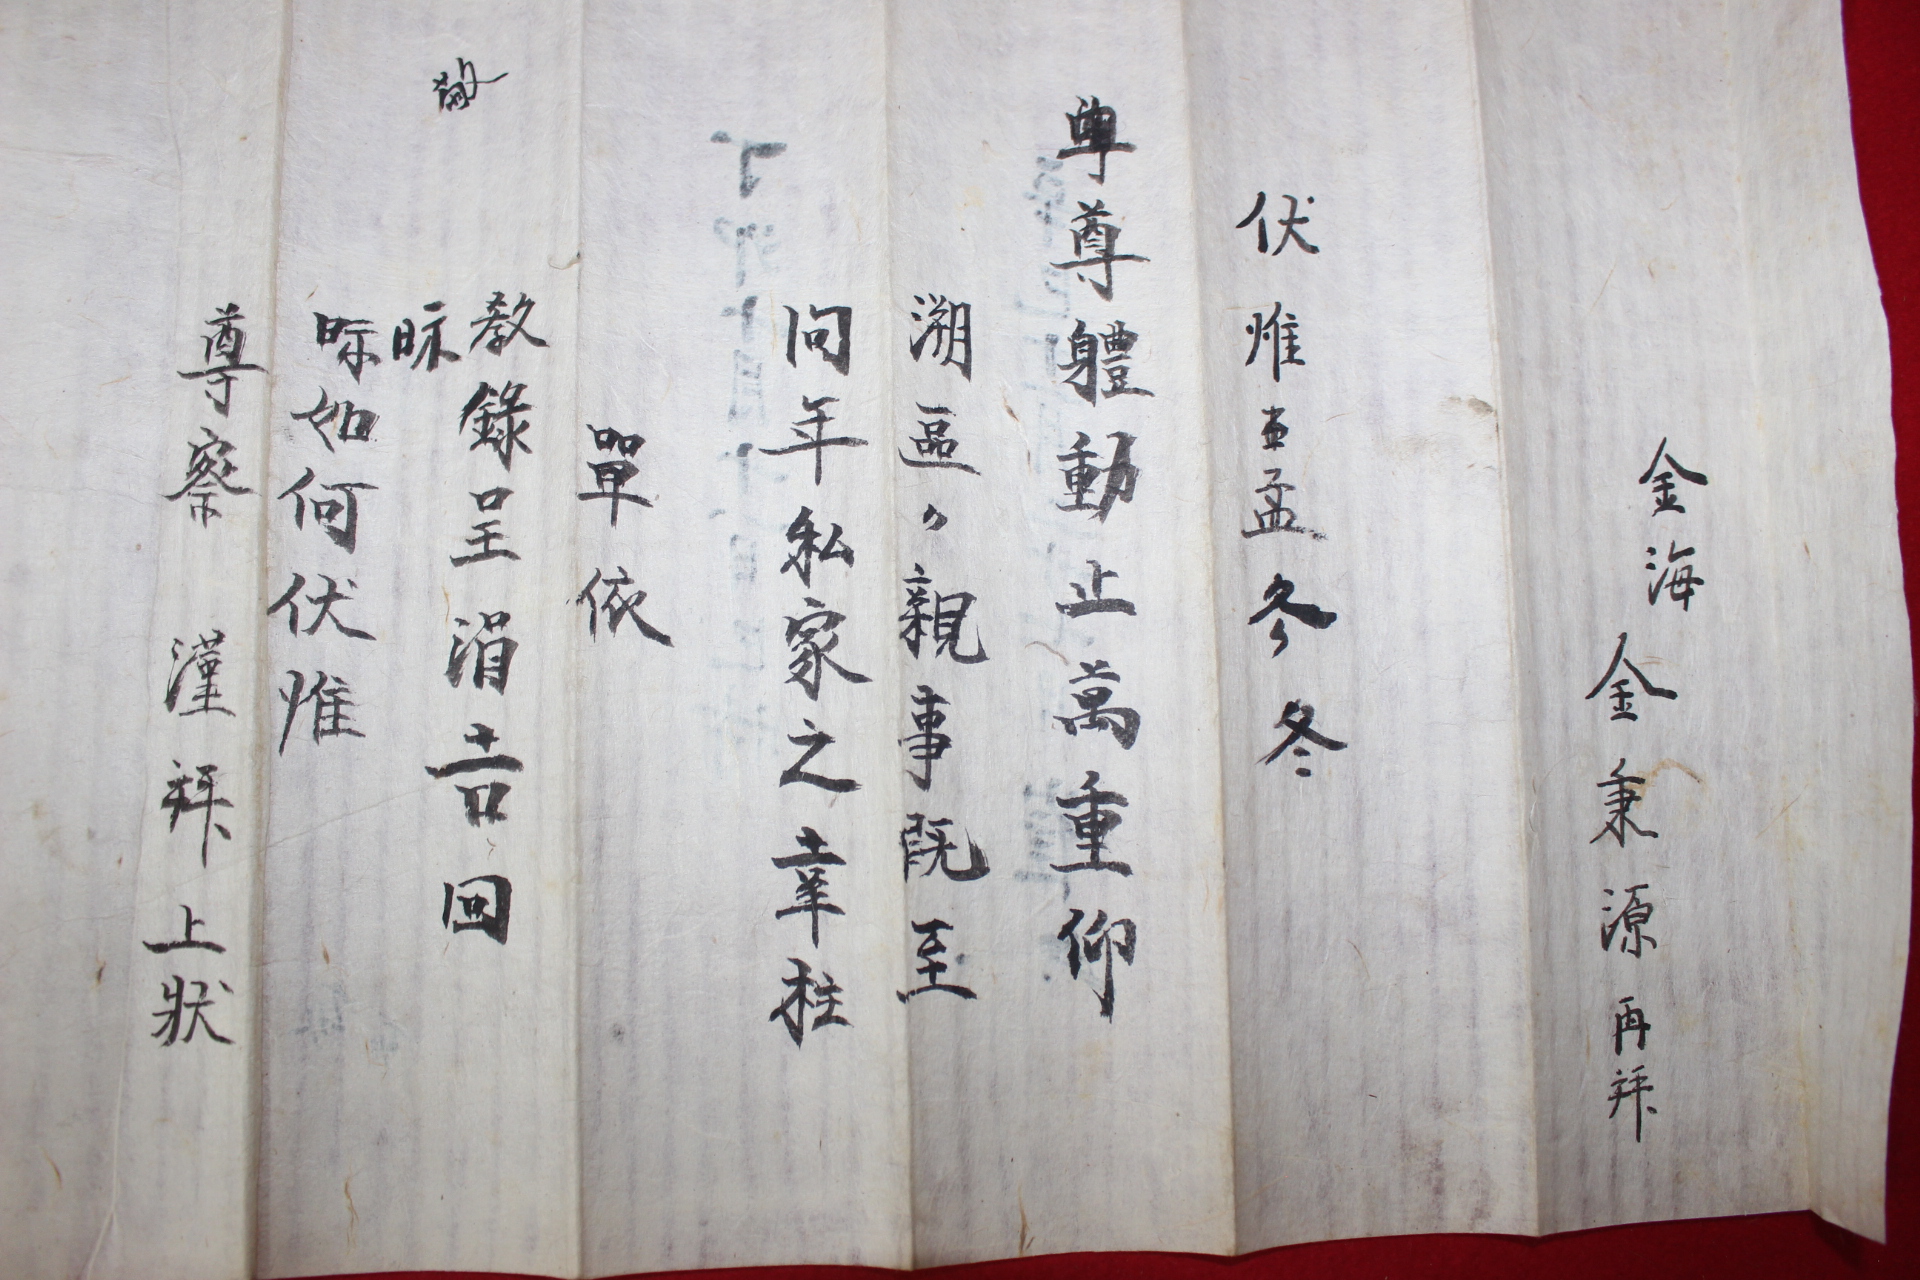 金海
金秉源再拜
伏惟孟冬冬
尊尊體動止萬重仰
溯區々親事旣至
問年私家之幸柱
單依
教錄呈涓吉回
眎
眎如何伏惟
尊察 謹拜上狀